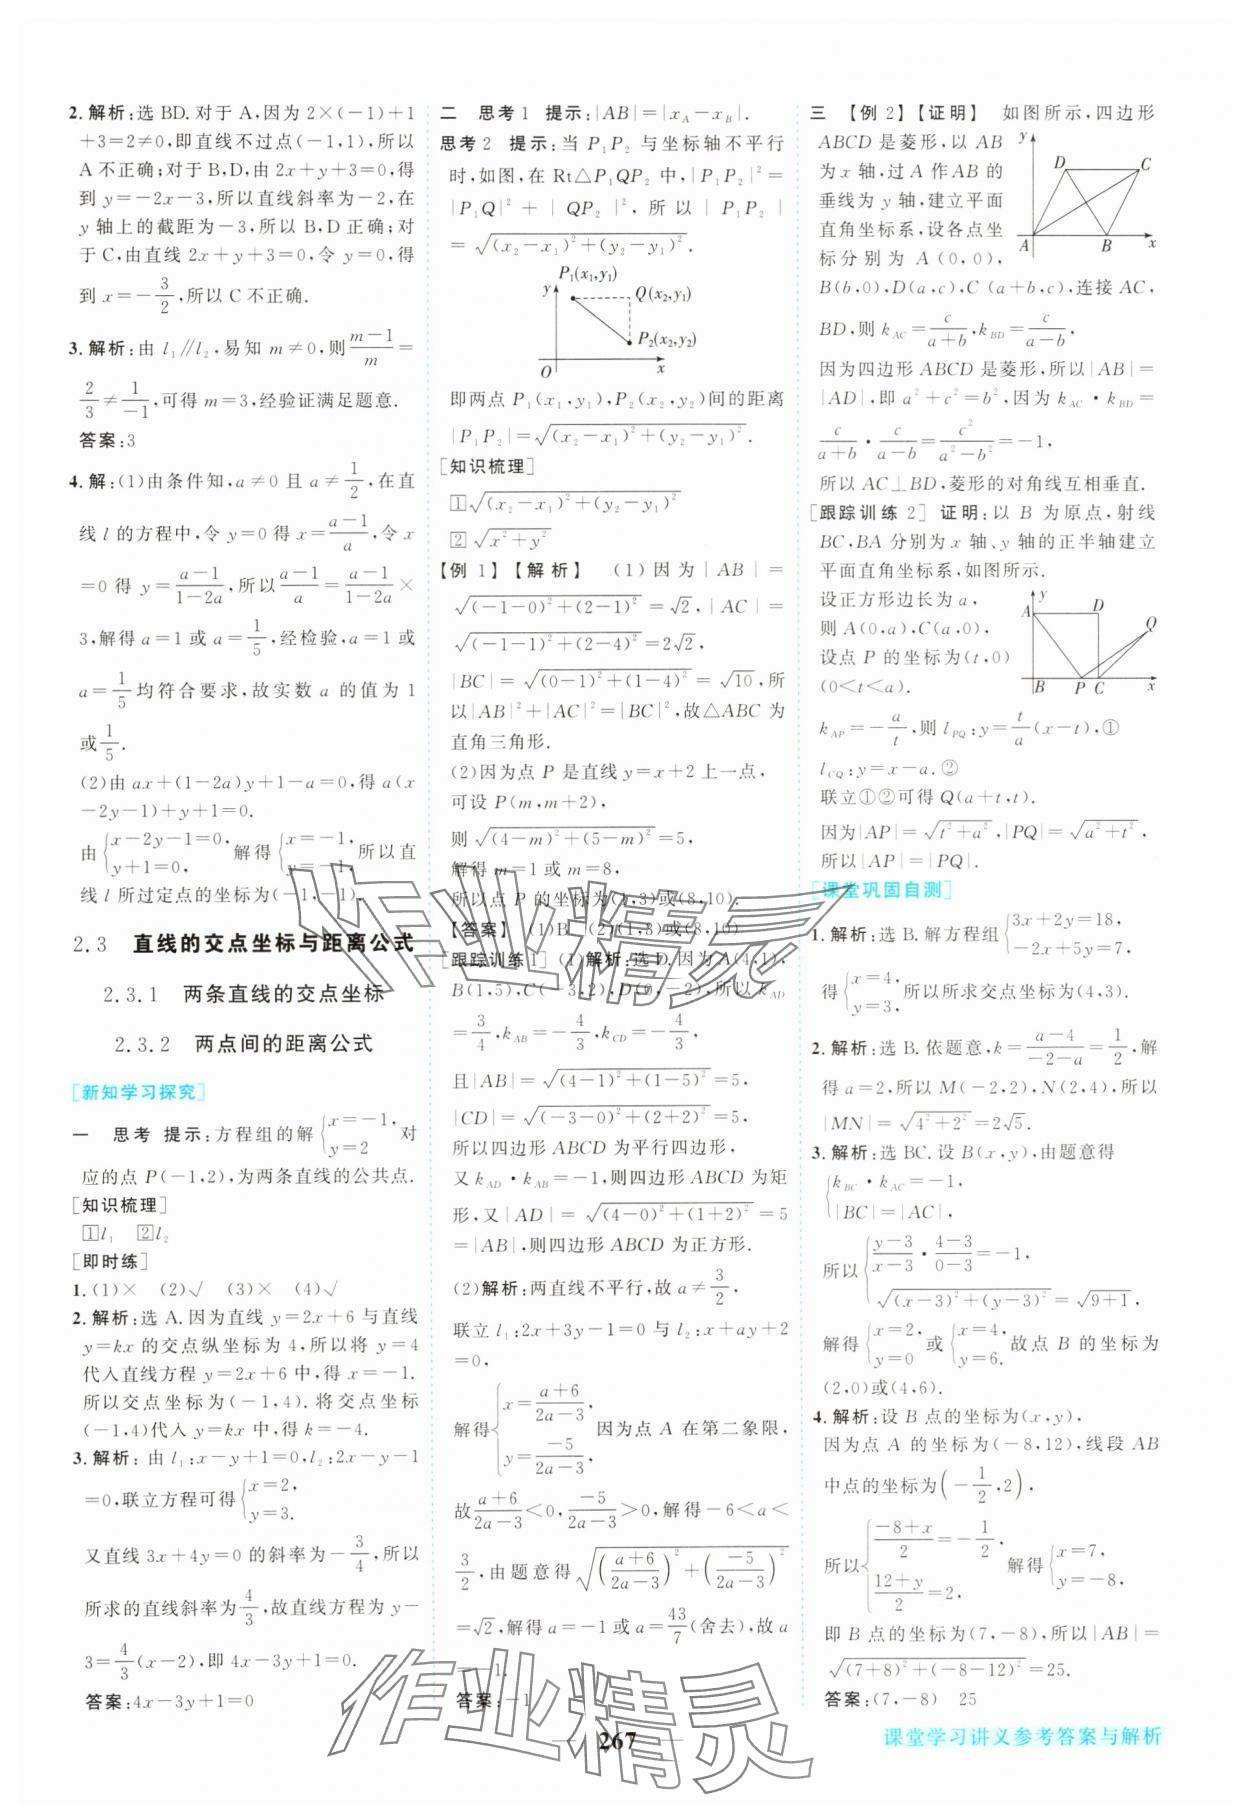 2.解析:选 BD.对于 A,因为 2×(-1)+1
+3=2≠0,即直线不过点(-1,1),所以
A 不正确;对于 B,D,由 2x+y+3=0,得
到 y=-2x-3,所以直线斜率为-2,在
y 轴上的截距为-3,所以 B,D 正确;对
于 C,由直线 2x+y+3=0,令 y=0,得
到 x=-3/2,所以 C 不正确.
3.解析:由 l₁∥l₂,易知 m≠0,则(m-1)/m=
2/3≠1/(-1),可得 m=3,经验证满足题意.
答案:3
4.解:(1)由条件知,a≠0 且 a≠1/2,在直
线 l 的方程中,令 y=0 得 x=(a-1)/a,令 x
=0 得 y=(a-1)/(1-2a),所以(a-1)/a=(a-1)/(1-2a)×
3,解得 a=1 或 a=1/5,经检验,a=1 或
a=1/5均符合要求,故实数 a 的值为 1
或1/5.
(2)由 ax+(1-2a)y+1-a=0,得 a(x
-2y-1)+y+1=0.
由{x-2y-1=0, y+1=0, 解得{x=-1, y=-1, 所以直
线 l 所过定点的坐标为(-1,-1).
2.3 直线的交点坐标与距离公式
2.3.1 两条直线的交点坐标
2.3.2 两点间的距离公式
[新知学习探究]
一 思考 提示:方程组的解{x=-1, y=2 对
应的点 P(-1,2),为两条直线的公共点.
[知识梳理]
①l₁ ②l₂
[即时练]
1.(1)× (2)√ (3)× (4)√
2.解析:选 A.因为直线 y=2x+6 与直线
y=kx 的交点纵坐标为 4,所以将 y=4
代入直线方程 y=2x+6 中,得 x=-1.
所以交点坐标为(-1,4).将交点坐标
(-1,4)代入 y=kx 中,得 k=-4.
3.解析:由 l₁:x-y+1=0,l₂:2x-y-1
=0,联立方程可得{x=2, y=3.
又直线 3x+4y=0 的斜率为-3/4,所以
所求的直线斜率为4/3,故直线方程为 y-
3=4/3(x-2),即 4x-3y+1=0.
答案:4x-3y+1=0
二 思考 1 提示:|AB|=|x_A-x_B|.
思考 2 提示:当 P₁P₂ 与坐标轴不平行
时,如图,在 Rt△P₁QP₂ 中,|P₁P₂|²=
|P₁Q|²+|QP₂|²,所以|P₁P₂|
=√((x₂-x₁)²+(y₂-y₁)²).
P₁(x₁,y₁)
y
Q(x₂,y₁)
P₂(x₂,y₂)
O x
即两点 P₁(x₁,y₁),P₂(x₂,y₂)间的距离
|P₁P₂|=√((x₂-x₁)²+(y₂-y₁)²).
[知识梳理]
①√((x₂-x₁)²+(y₂-y₁)²)
②√(x²+y²)
【例 1】【解析】 (1)因为|AB|=
√((-1-0)²+(2-1)²)=√2,|AC|=
√((-1-1)²+(2-4)²)=2√2,
|BC|=√((0-1)²+(1-4)²)=√10,所
以|AB|²+|AC|²=|BC|²,故△ABC 为
直角三角形.
(2)因为点 P 是直线 y=x+2 上一点,
可设 P(m,m+2),
则 √((4-m)²+(5-m)²)=5,
解得 m=1 或 m=8,
所以点 P 的坐标为(1,3)或(8,10).
【答案】 (1)B (2)(1,3)或(8,10)
[跟踪训练 1] (1)解析:选 D.因为 A(4,1),
B(1,5),C(-3,2),D(0,-2),所以 k_AD
=3/4,k_AB=-4/3,k_CD=-4/3,
且|AB|=√((4-1)²+(1-5)²)=5,
|CD|=√((-3-0)²+(2+2)²)=5,
所以四边形 ABCD 为平行四边形,
又 k_AD·k_AB=-1,则四边形 ABCD 为矩
形,又|AD|=√((4-0)²+(1+2)²)=5
=|AB|,则四边形 ABCD 为正方形.
(2)解析:两直线不平行,故 a≠3/2,
联立 l₁:2x+3y-1=0 与 l₂:x+ay+2
=0,
解得{x=(a+6)/(2a-3), y=(-5)/(2a-3). 因为点 A 在第二象限,
故(a+6)/(2a-3)<0,(-5)/(2a-3)>0,解得-6<a<
3/2,由题意得√(((a+6)/(2a-3))²+((-5)/(2a-3))²)
=√2,解得 a=-1 或 a=43/7(舍去),故 a
=-1.
答案:-1
三 【例 2】【证明】 如图所示,四边形
ABCD 是菱形,以 AB
为 x 轴,过 A 作 AB 的
垂线为 y 轴,建立平面
直角坐标系,设各点坐
标分别为 A(0,0),
y D C A B x
B(b,0),D(a,c),C(a+b,c),连接 AC,
BD,则 k_AC=c/(a+b),k_BD=c/(a-b),
因为四边形 ABCD 是菱形,所以|AB|=
|AD|,即 a²+c²=b²,因为 k_AC·k_BD=
c/(a+b)·c/(a-b)=c²/(a²-b²)=-1,
所以 AC⊥BD,菱形的对角线互相垂直.
[跟踪训练 2] 证明:以 B 为原点,射线
BC,BA 分别为 x 轴、y 轴的正半轴建立
平面直角坐标系,如图所示.
设正方形边长为 a,
则 A(0,a),C(a,0),
设点 P 的坐标为(t,0)
(0<t<a).
y A D Q B P C x
k_AP=-a/t,则 l_PQ:y=t/a(x-t),①
l_CQ:y=x-a.②
联立①②可得 Q(a+t,t).
因为|AP|=√(t²+a²),|PQ|=√(a²+t²),
所以|AP|=|PQ|.
[课堂巩固自测]
1.解析:选 B.解方程组{3x+2y=18, -2x+5y=7,
得{x=4, y=3, 所以所求交点坐标为(4,3).
2.解析:选 B.依题意,k=(a-4)/(-2-a)=1/2,解
得 a=2,所以 M(-2,2),N(2,4),所以
|MN|=√(4²+2²)=2√5.
3.解析:选 BC.设 B(x,y),由题意得
{k_BC·k_AC=-1, |BC|=|AC|,
所以{(y-3)/(x-3)·(4-3)/(0-3)=-1, √((x-3)²+(y-3)²)=√(9+1),
解得{x=2, y=0 或{x=4, y=6. 故点 B 的坐标为
(2,0)或(4,6).
4.解析:设 B 点的坐标为(x,y),
因为点 A 的坐标为(-8,12),线段 AB
中点的坐标为(-1/2,2),
所以{(-8+x)/2=-1/2, (12+y)/2=2, 解得{x=7, y=-8,
即 B 点的坐标为(7,-8),所以|AB|=
√((7+8)²+(-8-12)²)=25.
答案:(7,-8) 25
课堂学习讲义参考答案与解析
267
作业精灵
作业精灵